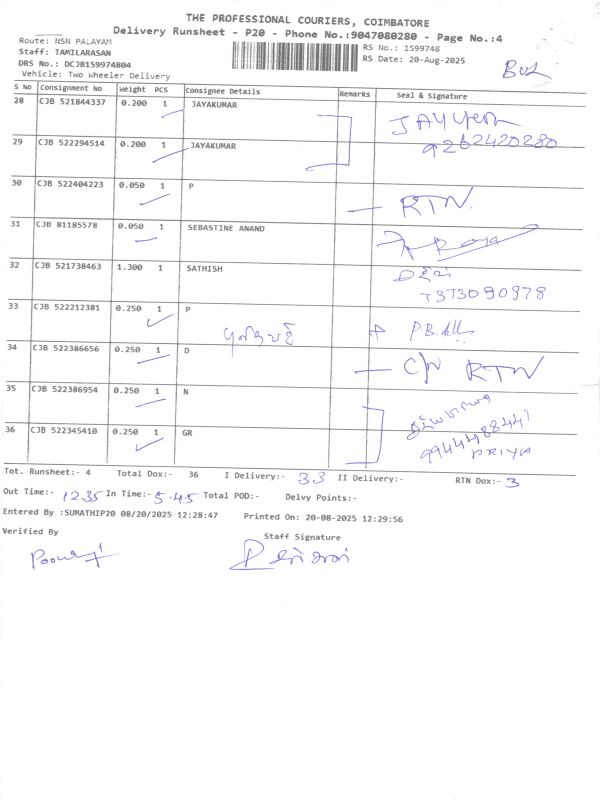 THE PROFESSIONAL COURIERS, COIMBATORE
Delivery Runsheet - P20 - Phone No.:9047080280 - Page No.:4
Route: NSN PALAYAM
RS No.: 1599748
Staff: TAMILARASAN
RS Date: 20-Aug-2025
DRS No.: DCJB159974804
Vehicle: Two Wheeler Delivery
S No Consignment No Weight PCS Consignee Details Remarks Seal & Signature
28 CJB 521844337 0.200 1 JAYAKUMAR
9262420280
29 CJB 522294514 0.200 1 JAYAKUMAR
30 CJB 522404223 0.050 1 P — RTN
31 CJB 81185578 0.050 1 SEBASTINE ANAND
32 CJB 521738463 1.300 1 SATHISH
33 CJB 522212381 0.250 1 P
34 CJB 522386656 0.250 1 D — C/N RTN
35 CJB 522386954 0.250 1 N
9944488441
36 CJB 522345410 0.250 1 GR PRIYA
Tot. Runsheet:- 4 Total Dox:- 36 I Delivery:- 33 II Delivery:- RTN Dox:- 3
Out Time:- 12.35 In Time:- 5.45 Total POD:- Delvy Points:-
Entered By :SUMATHIP20 08/20/2025 12:28:47 Printed On: 20-08-2025 12:29:56
Verified By Staff Signature